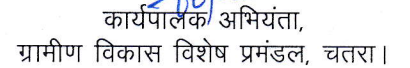 कार्यपालक अभियंता,
ग्रामीण विकास विशेष प्रमंडल, चतरा।